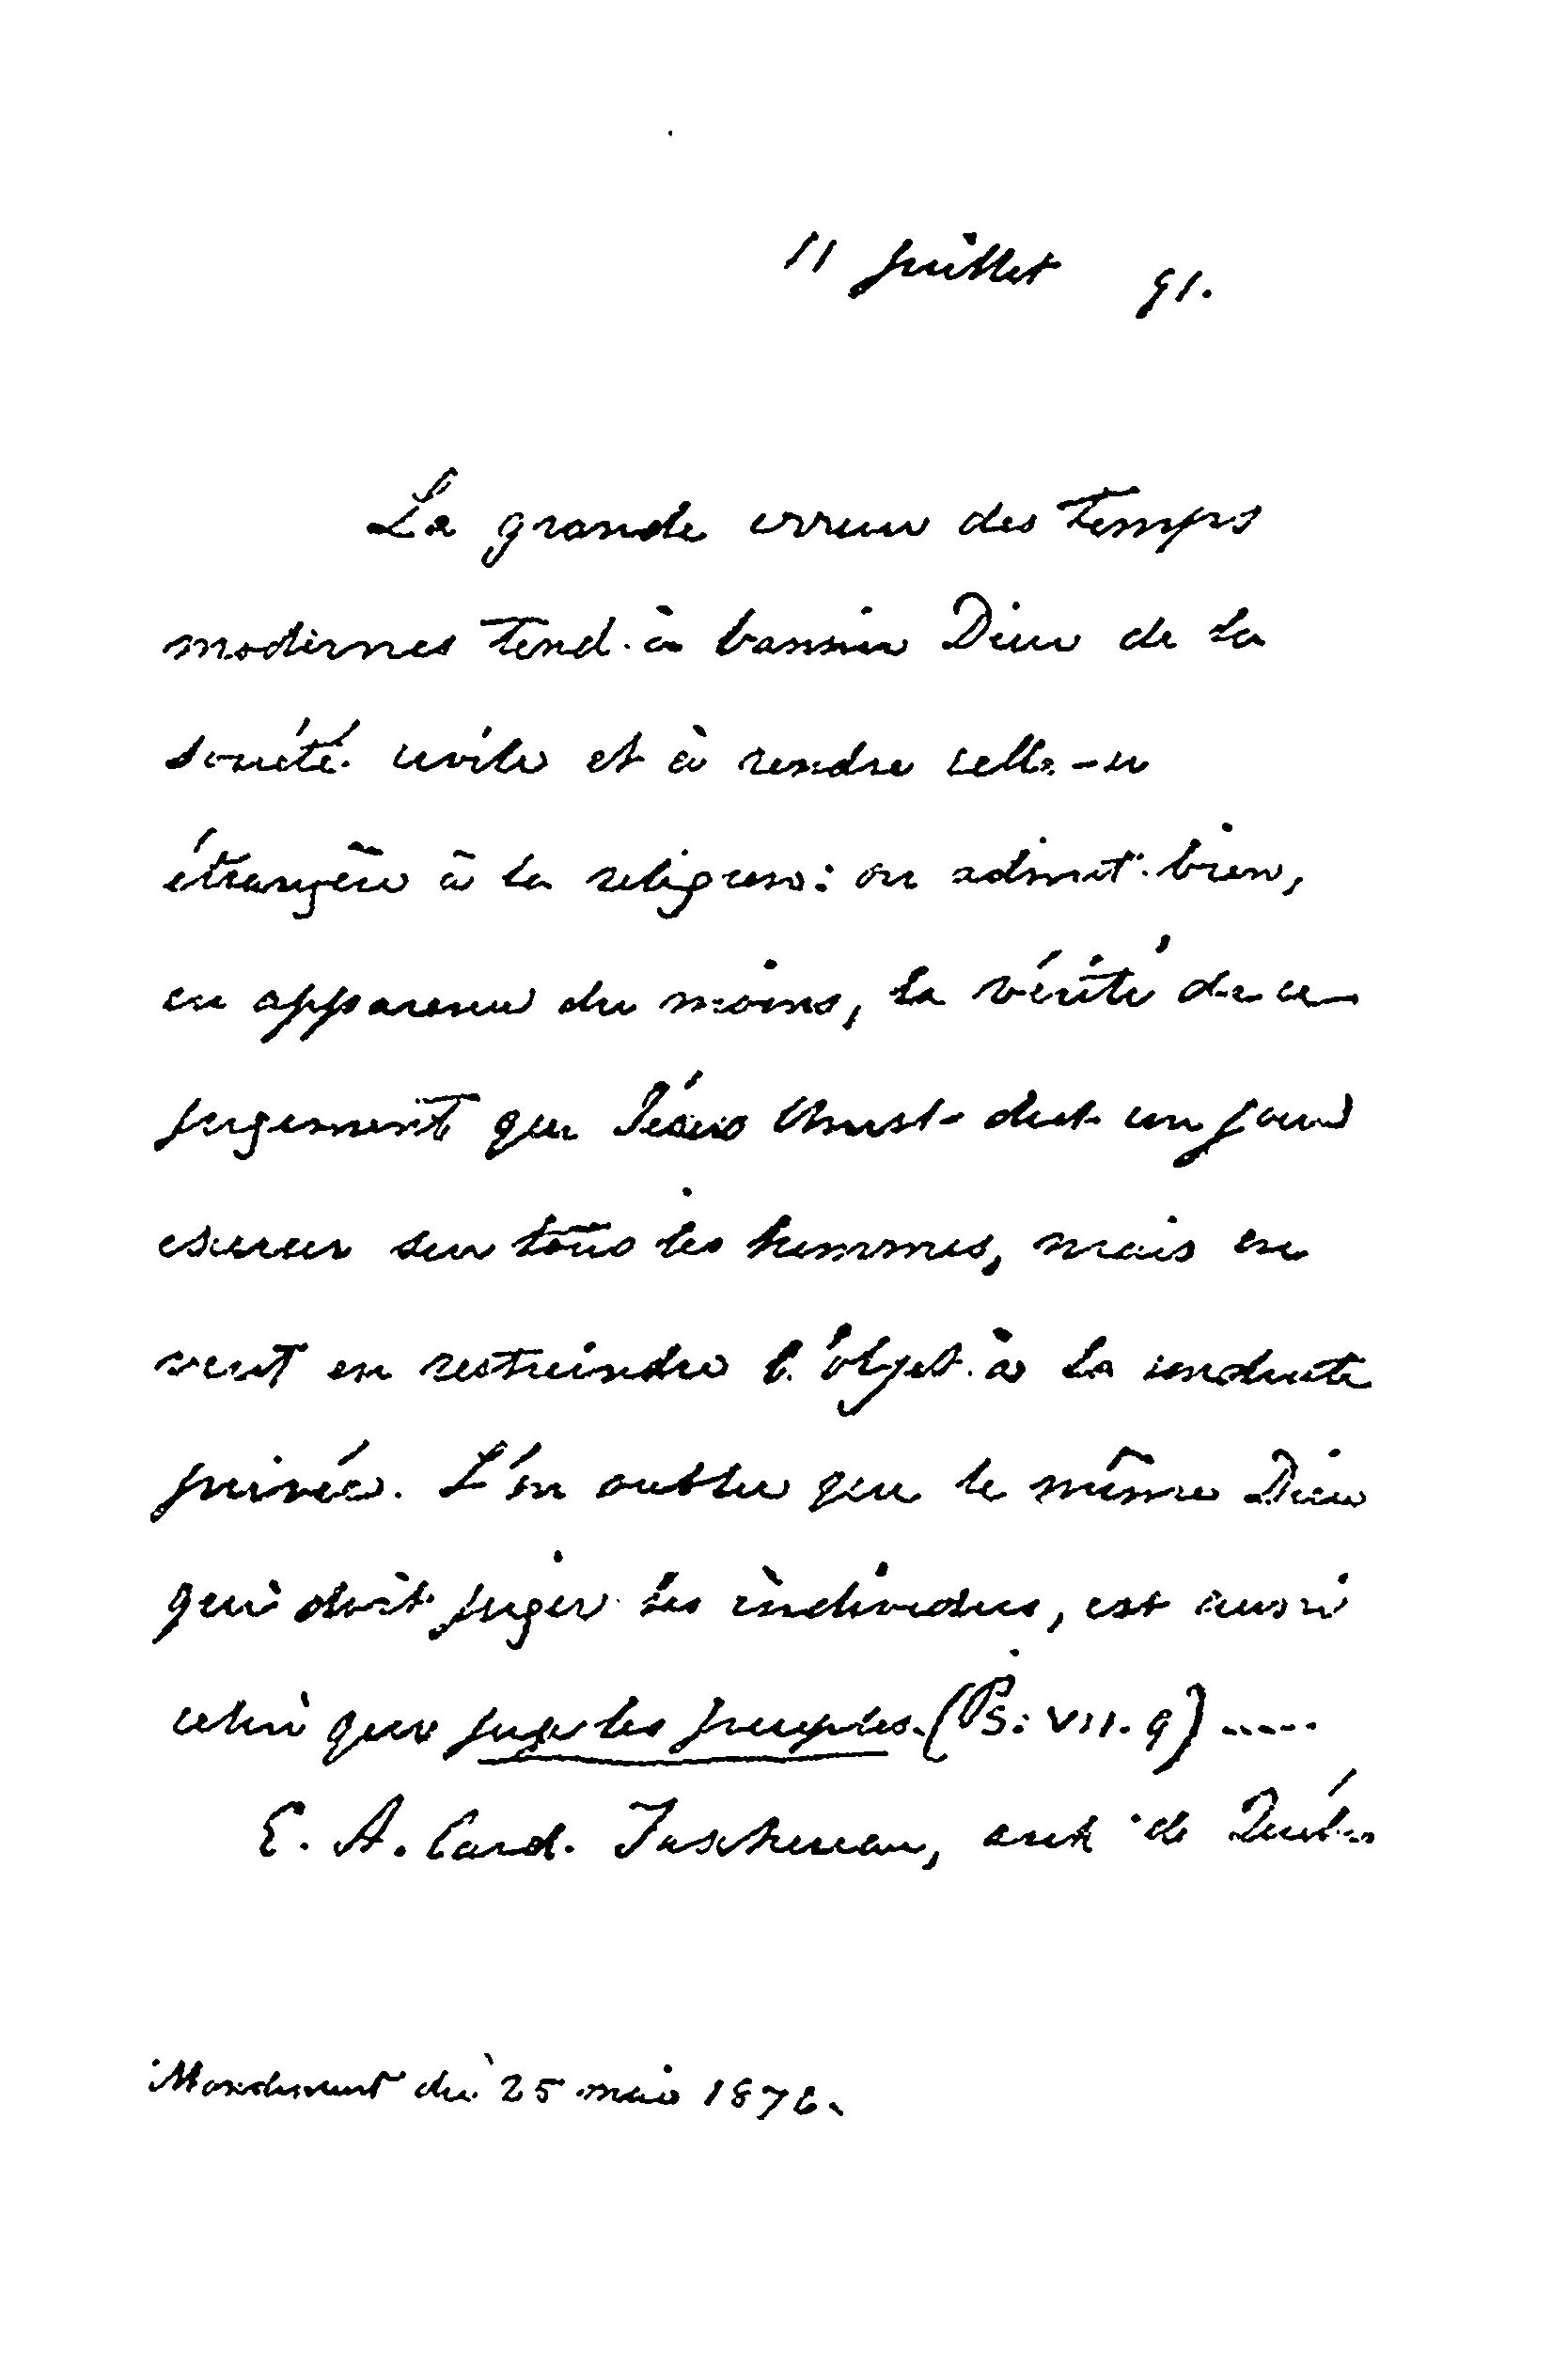 11 juillet 91.
La grande erreur des temps
modernes tend à bannir Dieu de la
société civile et à rendre celle-ci
étrangère à la religion: on admet bien,
en apparence du moins, la vérité de ce
jugement que Jésus Christ doit un jour
exercer sur tous les hommes, mais on
veut en restreindre l'objet à la conduite
privée. L'on oublie que le même Dieu
qui doit juger les individus, est aussi
celui qui juge les peuples. (Ps: VII. 9) .....
E. A. Card. Taschereau, arch de Québec
Mandement du 25 mai 1876.